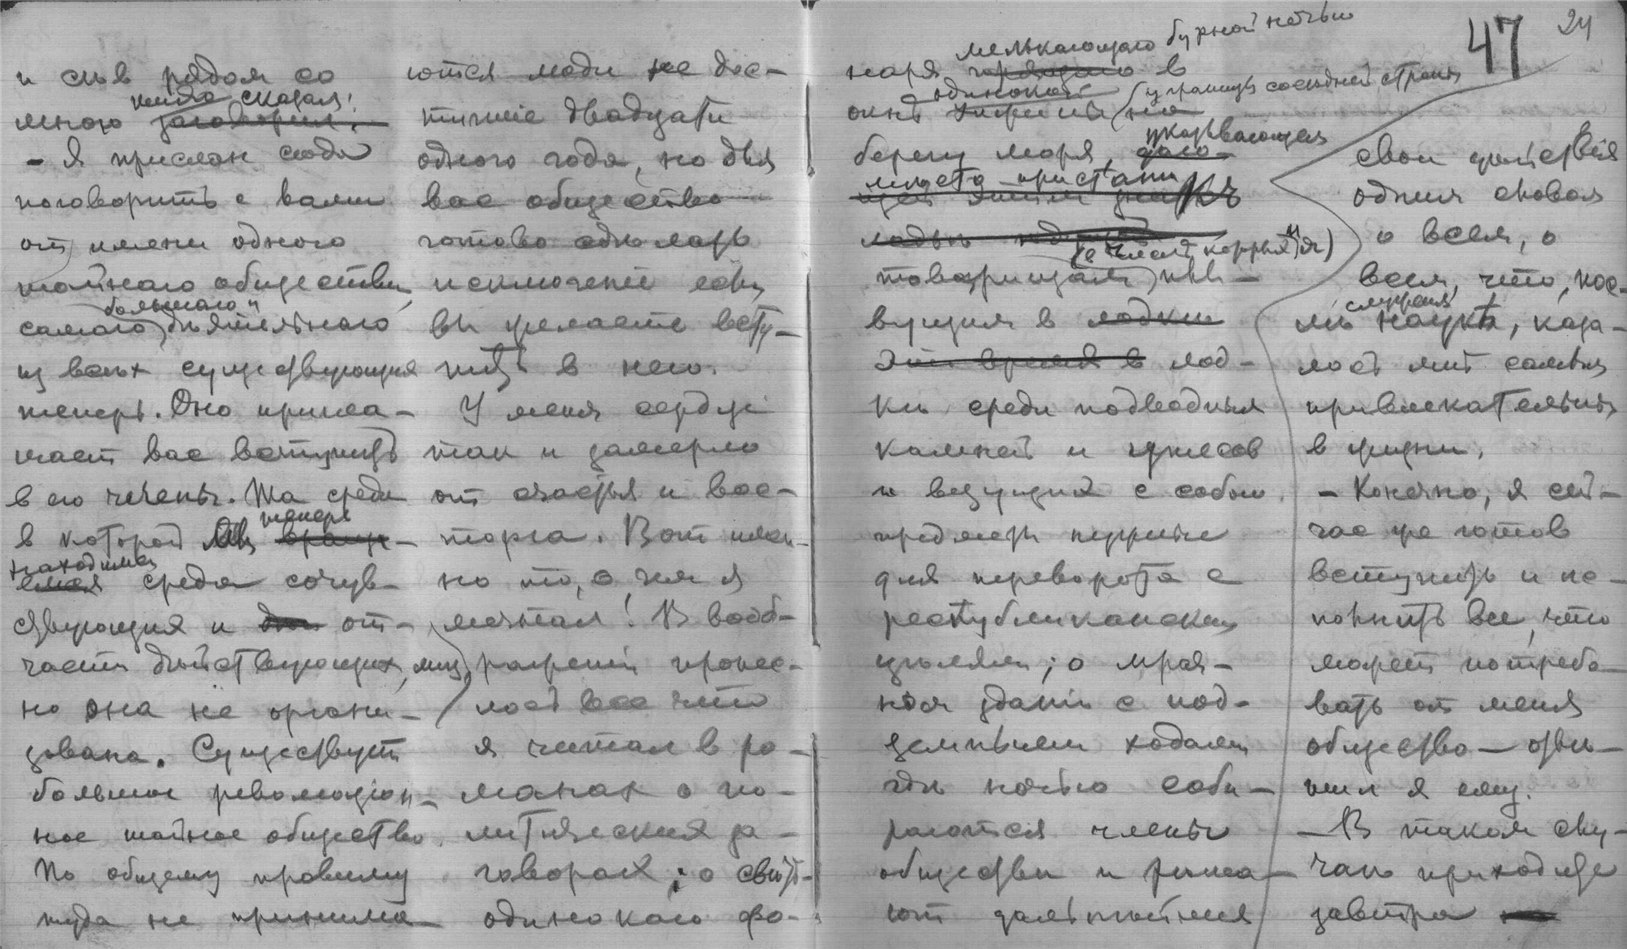 и сев рядом со
мною тихо сказал:
заговорил.
- Я прислан сюда
поговорить с вами
от имени одного
тайного общества,
самаго большаго и
дѣятельнаго
из всех существующих
теперь. Оно пригла-
шает вас вступить
в его члены. Та среда
в которой мы теперь
находимся
среда сочув-
ствующих и от-
части дѣйствующих лиц,
но она не органи-
зована. Существует
большое революціон-
ное тайное общество.
По общему правилу
туда не принима-
ются люди не дос-
тигшіе двадцати
одного года, но для
вас общество
готово сделать
исключеніе если
вы желаете всту-
пить в него.
У меня сердце
так и замерло
от счастья и вос-
торга. Вот имен-
но то, о чем я
мечтал! В вооб-
раженіи пронес-
лось все что
я читал в ро-
манах о по-
литических за-
говорах; о свѣтѣ
одинокаго фо-
47
24
наря мелькающаго бурной ночью
в
окнѣ одинокой
у границъ соседней страны
на
берегу моря, указывающая
место пристани
товарищам, плы-
вущим в лодки
это время в лод-
ки среди подводных
камней и утесов
и везущих с собою
предметы нужные
для переворота с
республиканскими
целями; о мрач-
ном зданіи с под-
земными ходами
гдѣ ночью соби-
раются члены
общества и
свои дѣйствія
одним словом
о всем, о
всем, что, пос-
лѣ служенія
наукѣ, каза-
лось мнѣ самым
привлекательным
в жизни.
- Конечно, я сей-
час же готов
вступить и ис-
полнить все, что
может потребо-
вать от меня
общество - отвѣ-
тил я ему.
- В таком слу-
чаѣ приходите
завтра